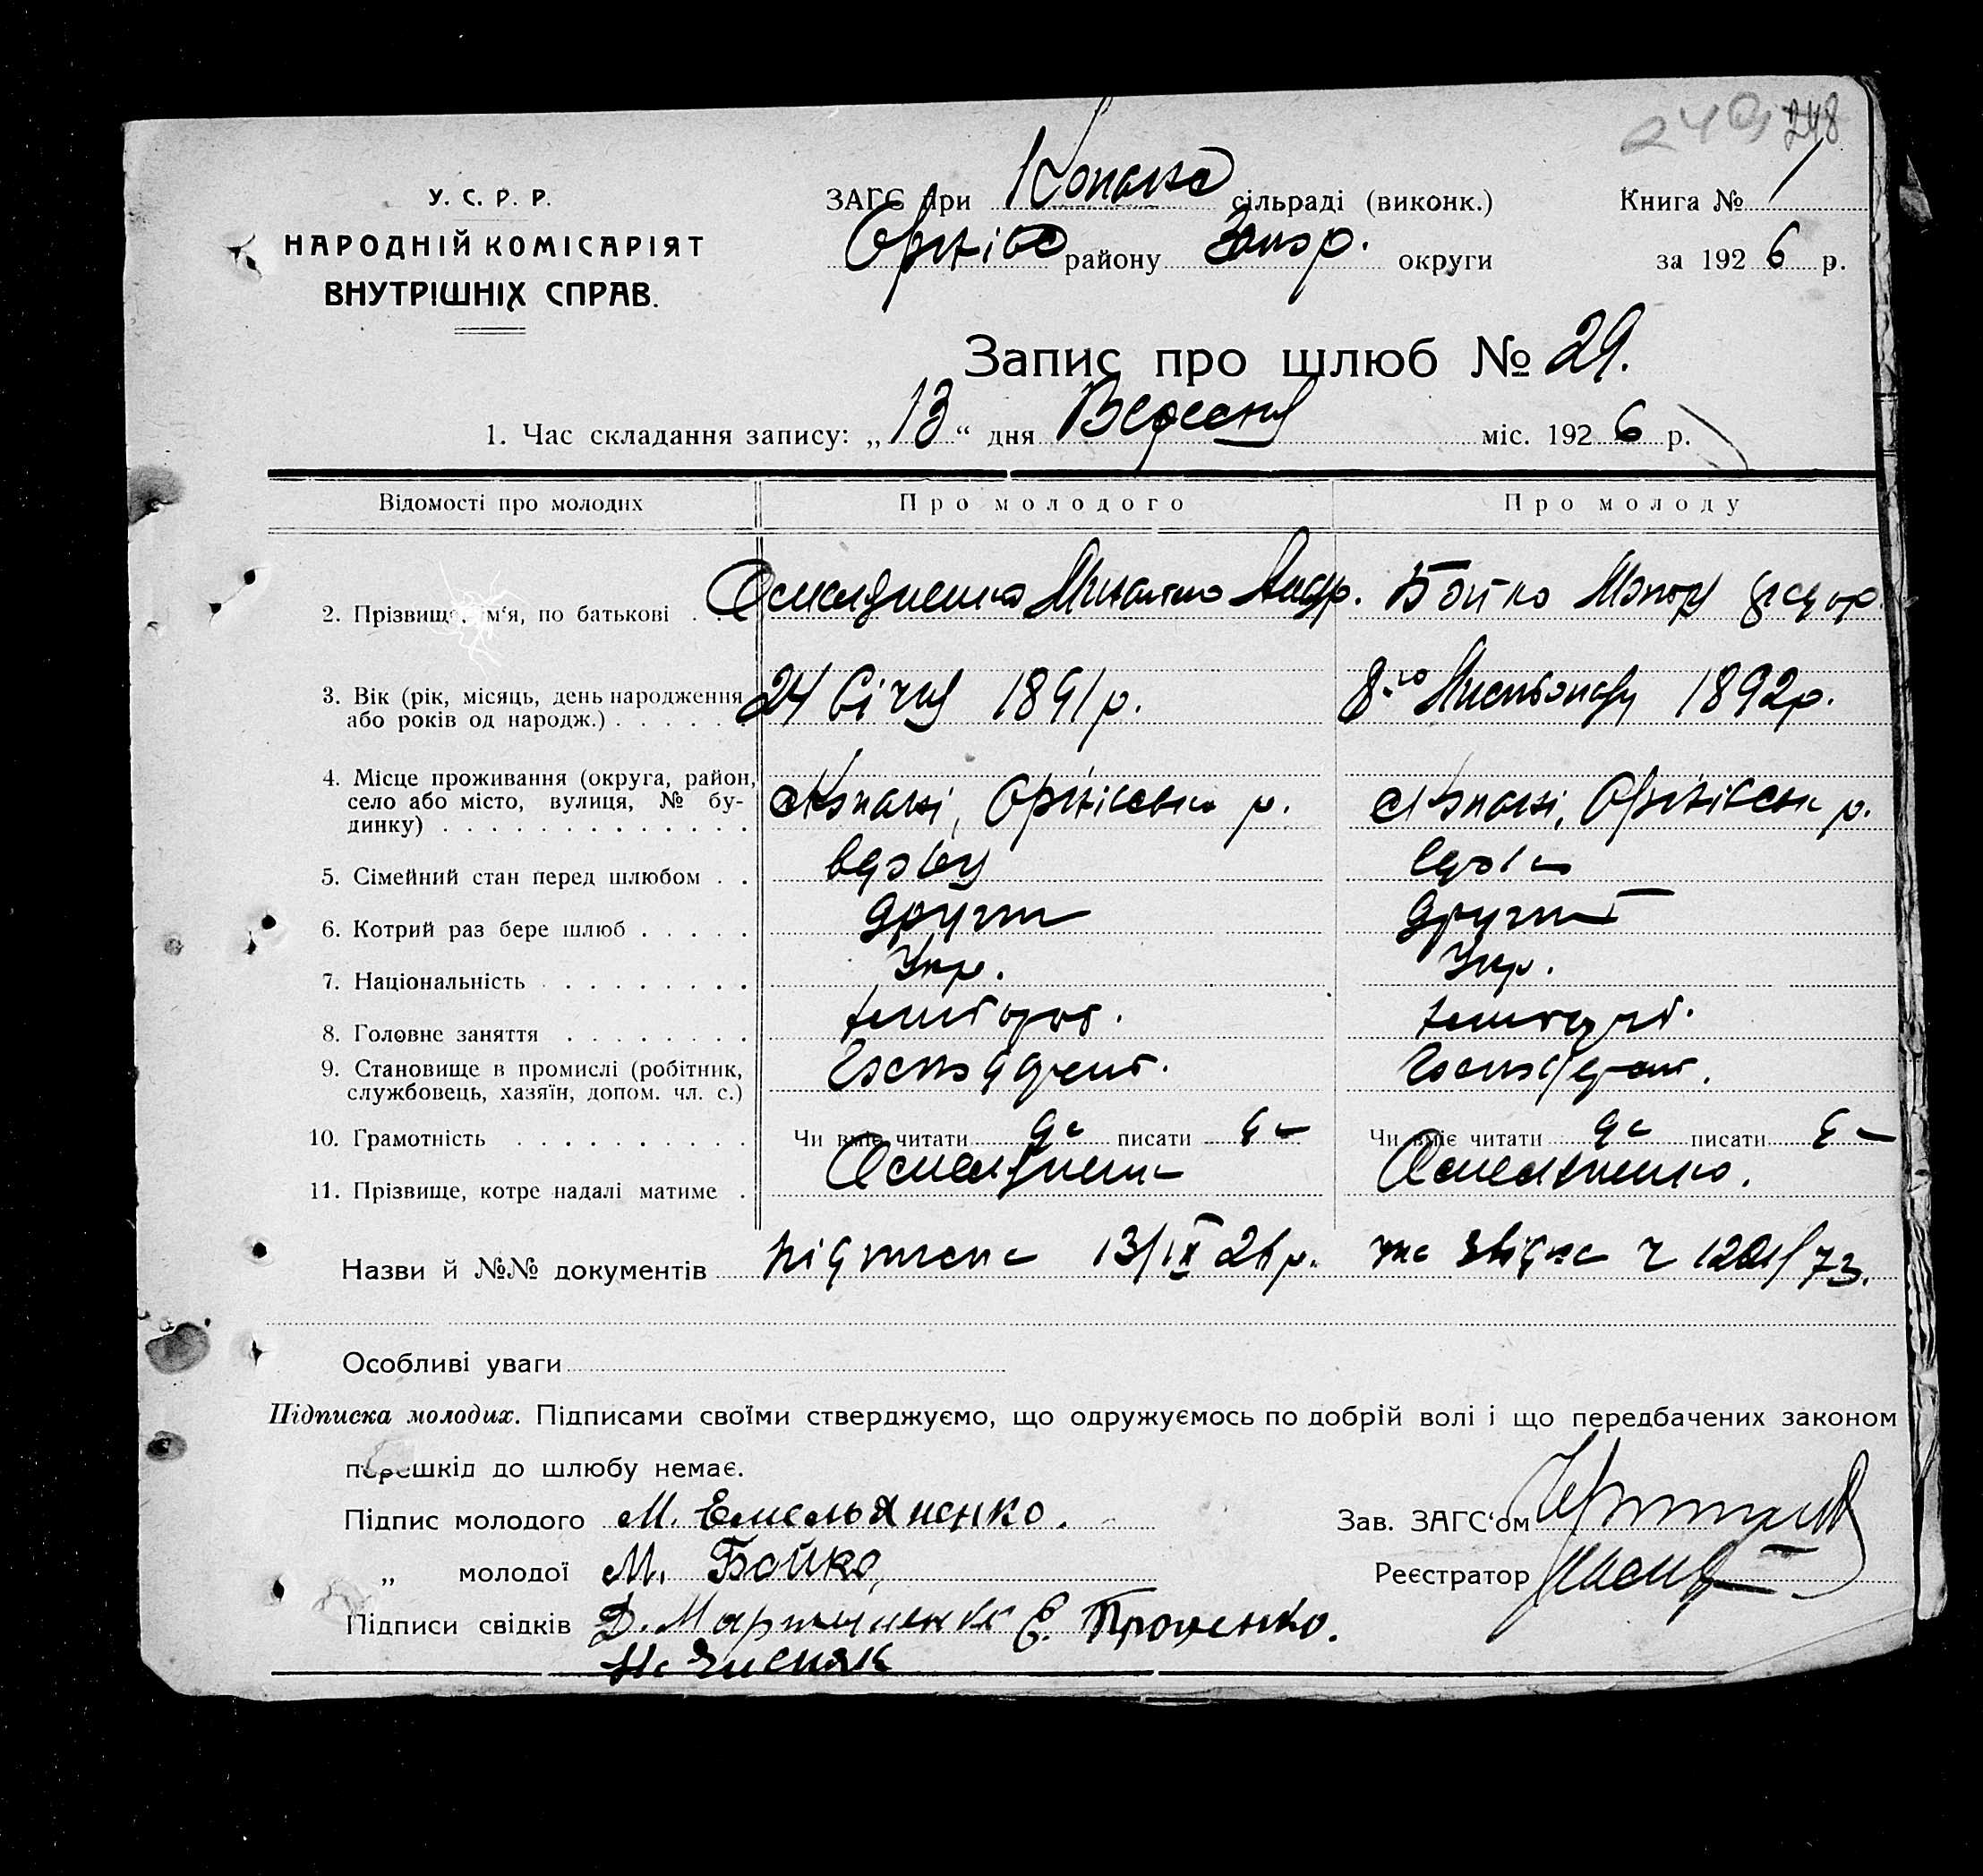 248
У. С. Р. Р.
НАРОДНІЙ КОМІСАРІЯТ
ВНУТРІШНІХ СПРАВ.
ЗАГС при Копанс сільраді (виконк.)
Оріхівс району Запор. округи
Книга № 1
за 1926 р.
Запис про шлюб № 29.
1. Час складання запису: „13“ дня Вересня міс. 1926 р.
Відомості про молодих Про молодого Про молоду
2. Прізвище, ім‘я, по батькові . . Омеляненко Михайло Андр. Бойко Мотря Федор.
3. Вік (рік, місяць, день народження 24 Січня 1891 р. 8го Листопаду 1892 р.
або років од народж.) . . . . . .
4. Місце проживання (округа, район, с Копані, Оріхівськ р. с Копані, Оріхівськ р.
село або місто, вулиця, № бу-
динку) . . . . . . . . . . . . .
5. Сімейний стан перед шлюбом . . вдівец вдова
6. Котрий раз бере шлюб . . . . . другий другий
7. Національність . . . . . . . . . Укр. Укр.
8. Головне заняття . . . . . . . . хлібороб. хлібороб.
9. Становище в промислі (робітник,
службовець, хазяїн, допом. чл. с.)
10. Грамотність . . . . . . . . . . Чи вміє читати да писати Чи вміє читати да писати
11. Прізвище, котре надалі матиме . Омеляненко Омеляненко.
Назви й №№ документів підписка 13/IX 26 р. та звідка ч 1201/73.
Особливі уваги
Підписка молодих. Підписами своїми стверджуємо, що одружуємось по добрій волі і що передбачених законом
перешкід до шлюбу немає.
Підпис молодого М. Емельяненко.
„ молодої М. Бойко,
Підписи свідків Д. Мартыненко Е. Проценко.
Зав. ЗАГС‘ом
Реєстратор